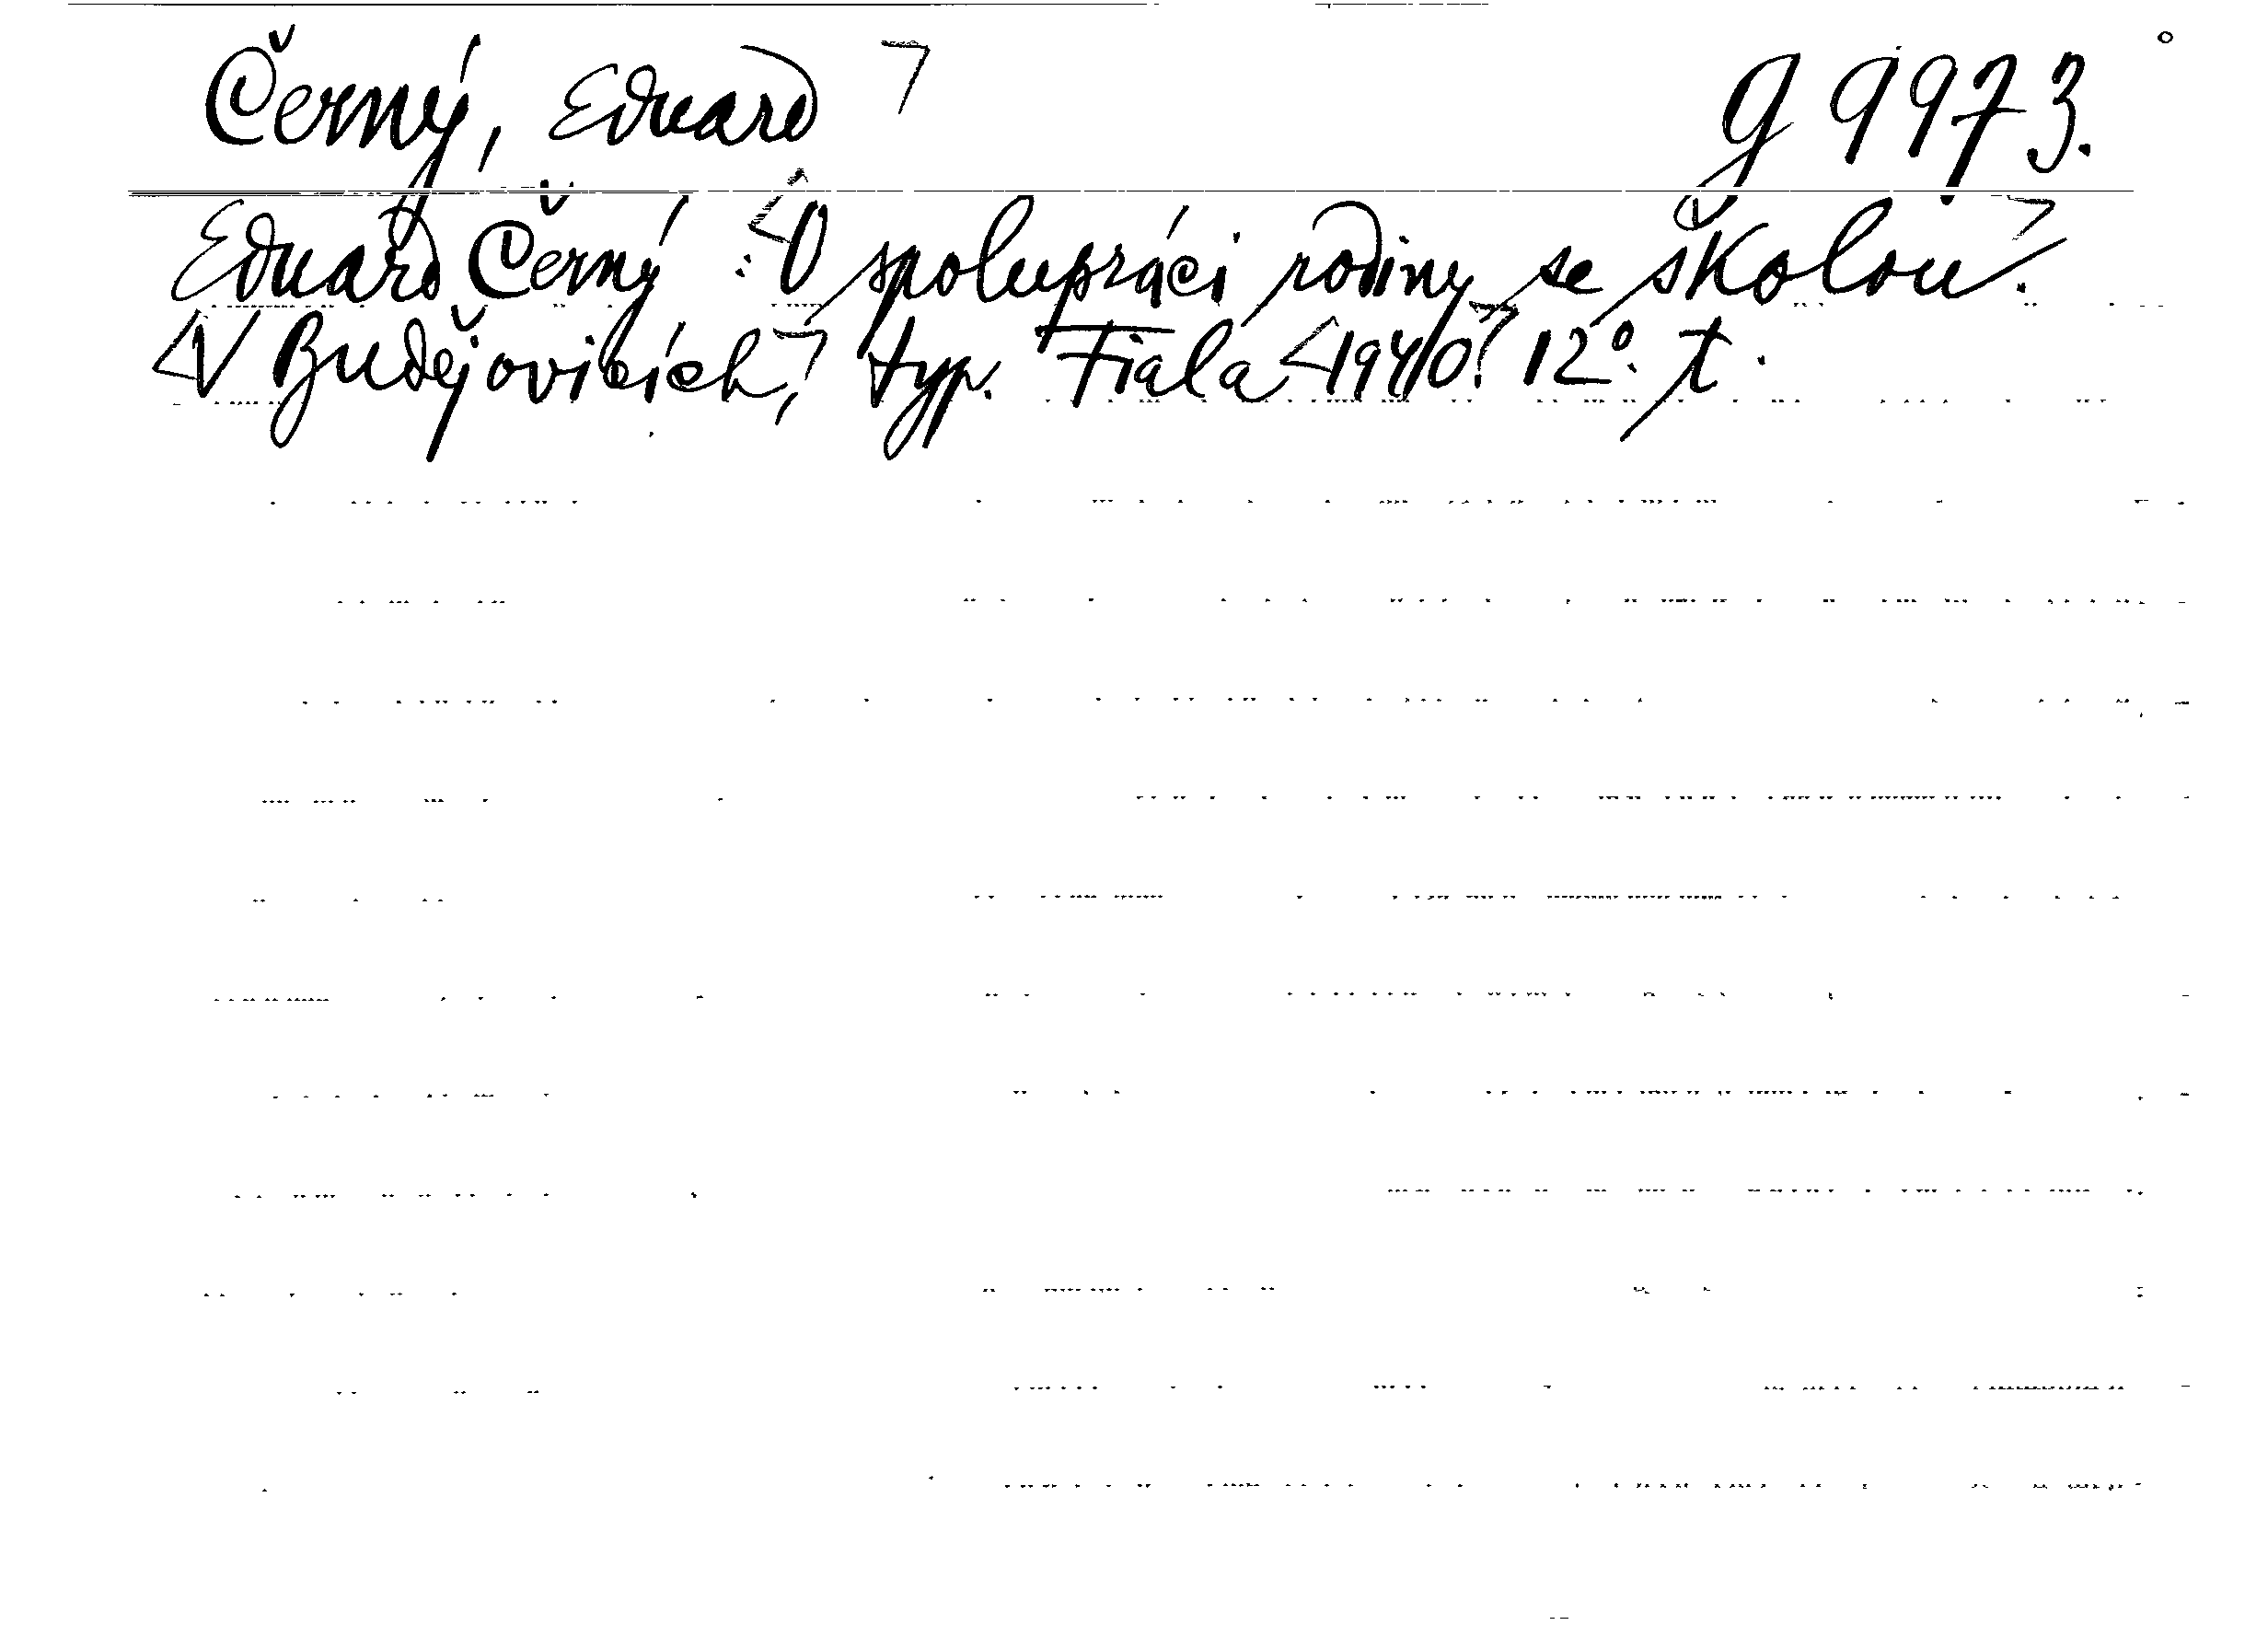 Černý, Eduard g 9973.
Eduard Černý : O spolupráci rodiny se školou.
V Budějovicích, typ. Fiala 1940. 12°. t.